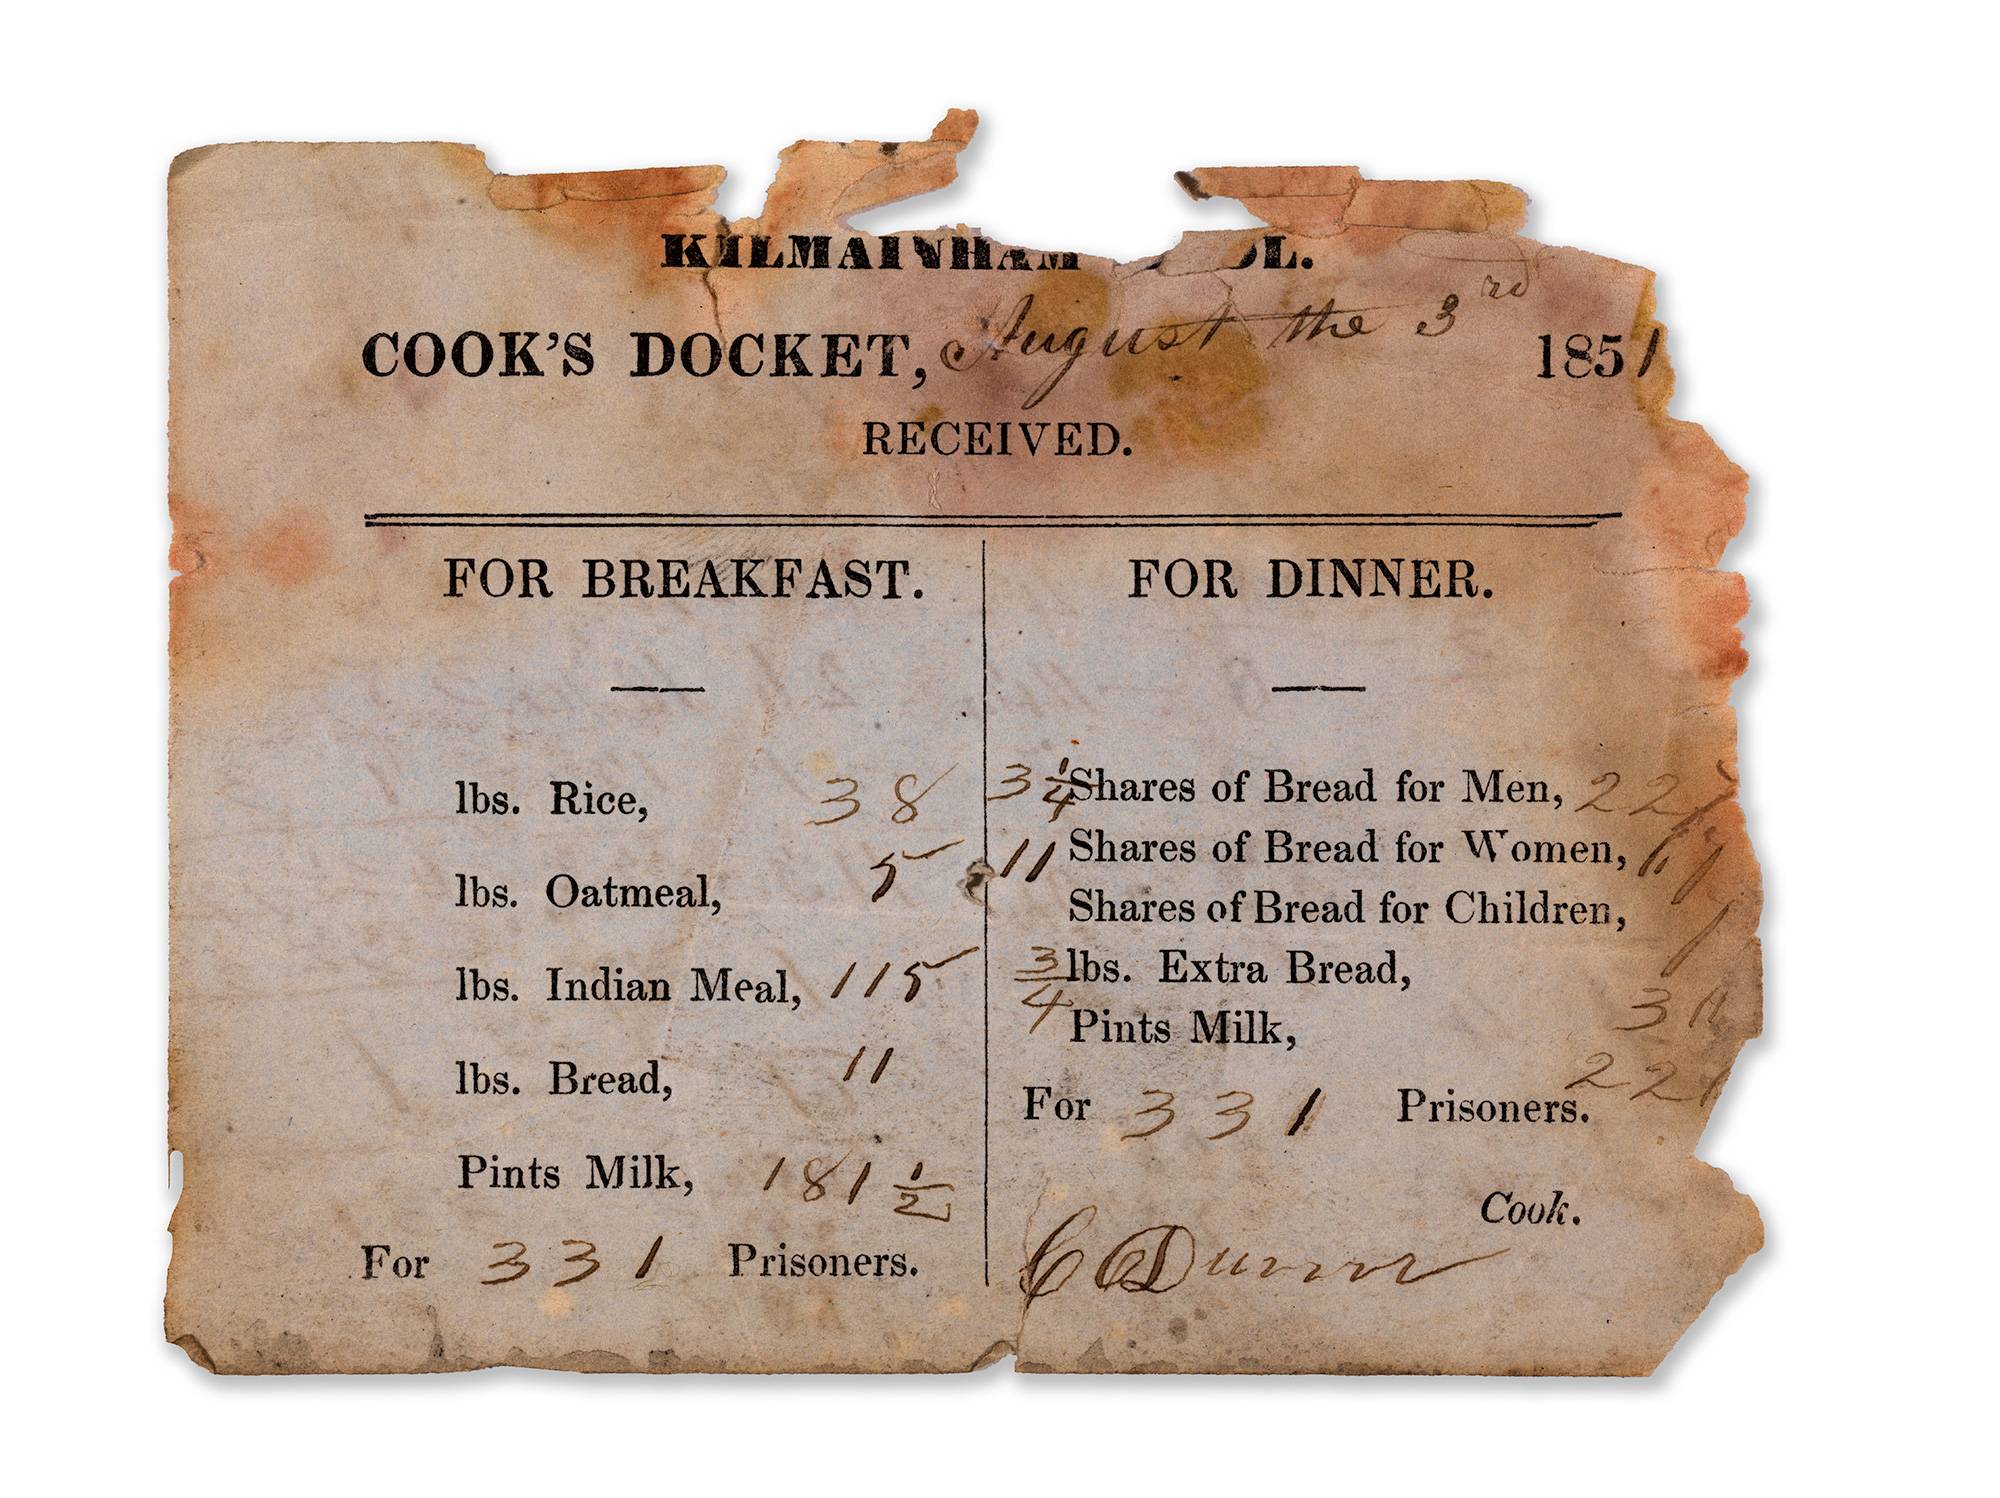 KILMAINHAM
COOK'S DOCKET, August the 3rd 1851
RECEIVED.
FOR BREAKFAST.
lbs. Rice, 38
lbs. Oatmeal, 5
lbs. Indian Meal, 115
lbs. Bread, 11
Pints Milk, 181 1/2
For 331 Prisoners.
FOR DINNER.
3 1/4 Shares of Bread for Men,
11 Shares of Bread for Women,
Shares of Bread for Children,
3/4 lbs. Extra Bread,
Pints Milk,
For 331 Prisoners.
Cook.
C Dunn